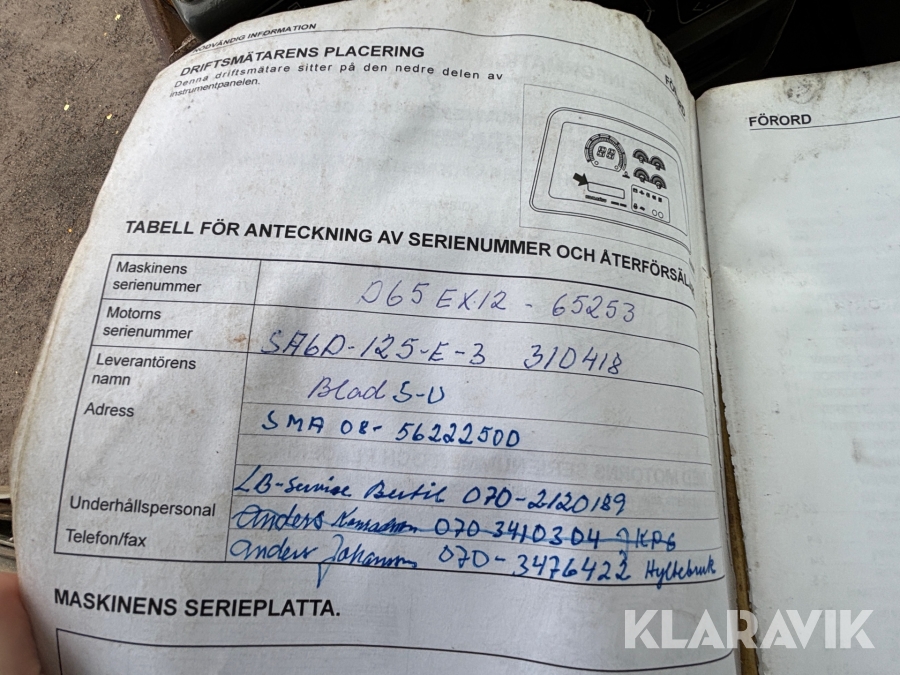 NÖDVÄNDIG INFORMATION
DRIFTSMÄTARENS PLACERING
Denna driftsmätare sitter på den nedre delen av
instrumentpanelen.
FÖRORD
TABELL FÖR ANTECKNING AV SERIENUMMER OCH ÅTERFÖRSÄL
Maskinens
serienummer
D65 EX12 - 65253
Motorns
serienummer
SA6D-125-E-3 310418
Leverantörens
namn
Blad S-U
Adress
SMA 08-56222500
LB-Service Bertil 070-2120189
Underhållspersonal
Anders 070-3410304 JKPG
Telefon/fax
Anders Johansson 070-3476422 Hyltebruk
MASKINENS SERIEPLATTA.
KLARAVIK